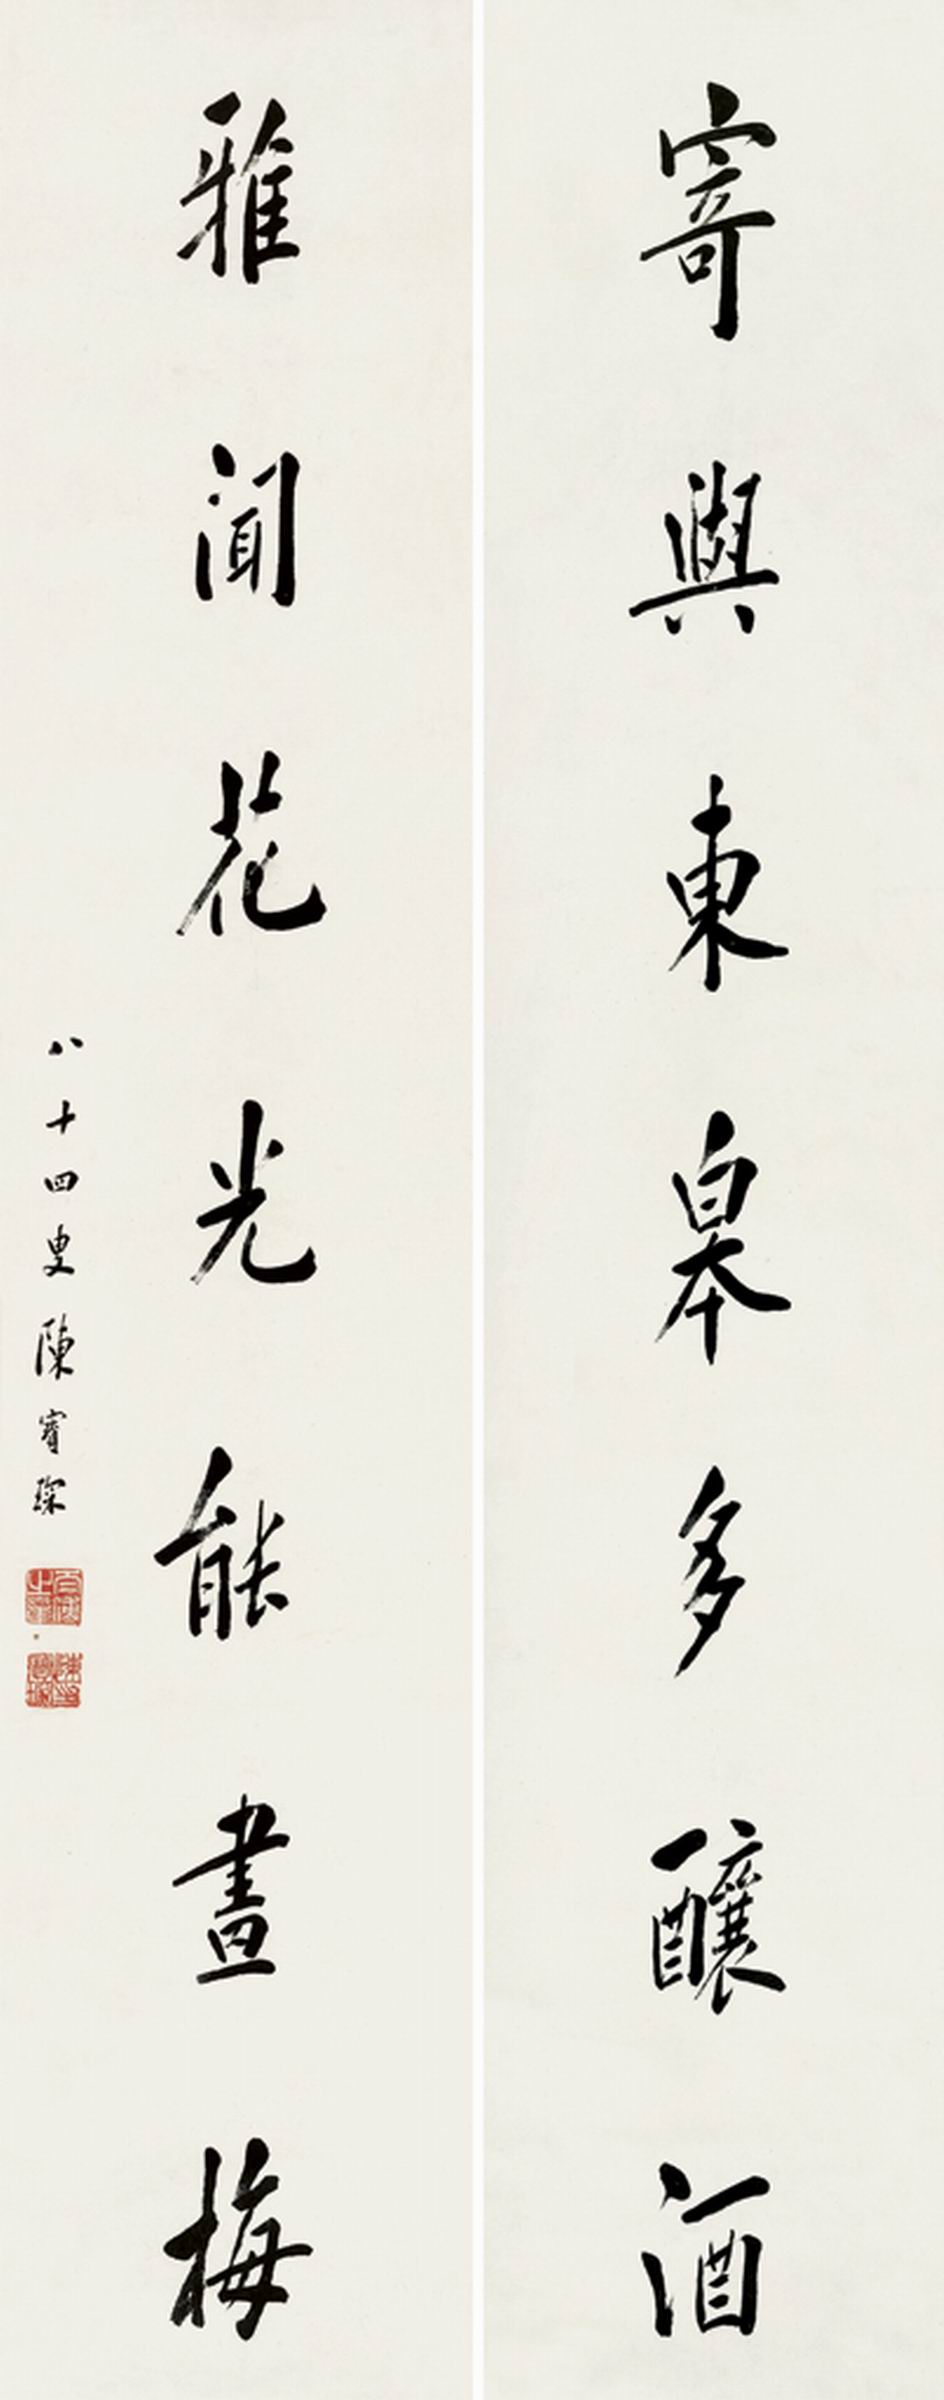 寄興東皋多釀酒
雅聞花光能畫梅
八十四叟陳寶琛